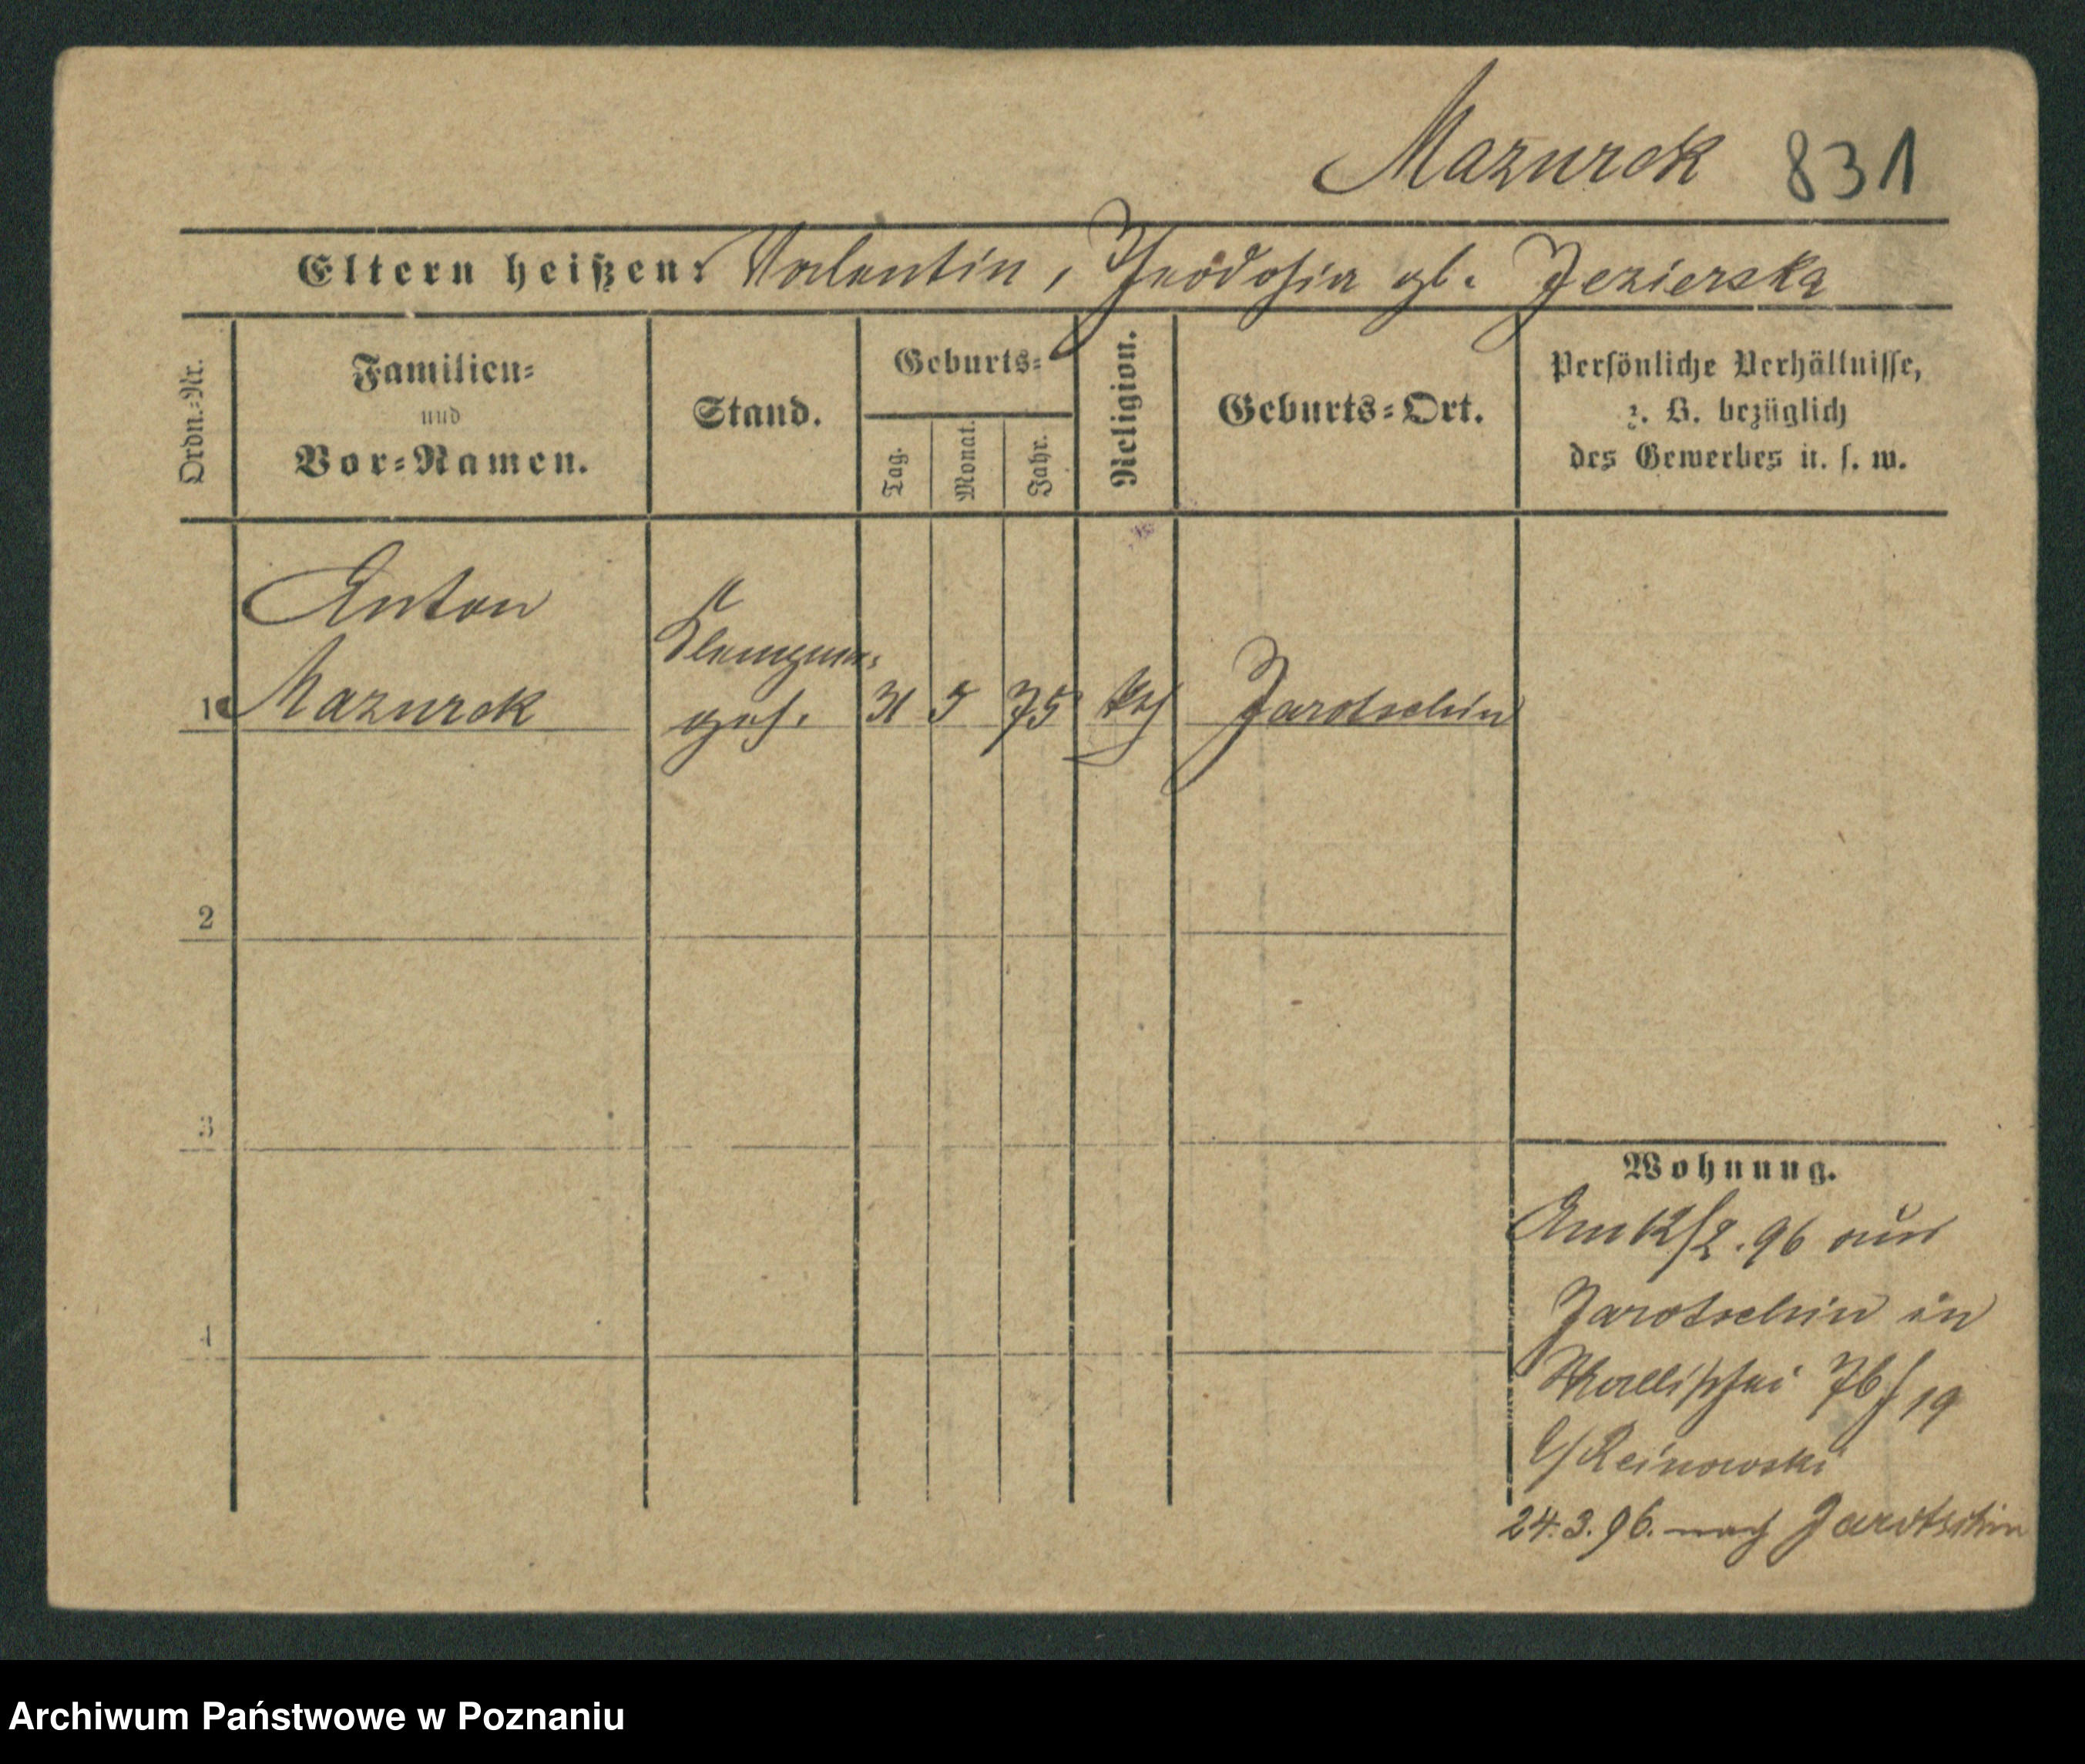 Mazurek 831
Eltern heißen: Valentin, Theodosia gb. Jezierska
Ordn.-Nr.
Familien-
und
Vor-Namen.
Stand.
Geburts-
Tag.
Monat.
Jahr.
Religion.
Geburts-Ort.
Persönliche Verhältnisse,
z. B. bezüglich
des Gewerbes u. s. w.
Anton
Klempner-
1 Mazurek ges. 31 5 75 kth Jarotschin
2
3
4
Wohnung.
Am 12/2. 96 aus
Jarotschin in
Wallischei 76/19
b/Reinowski
24.3.96. nach Jarotschin
Archiwum Państwowe w Poznaniu